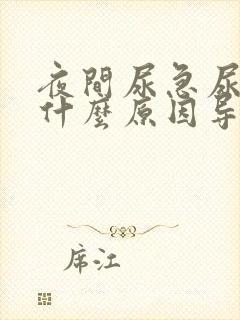 夜間尿急尿
什麼原因导
席江